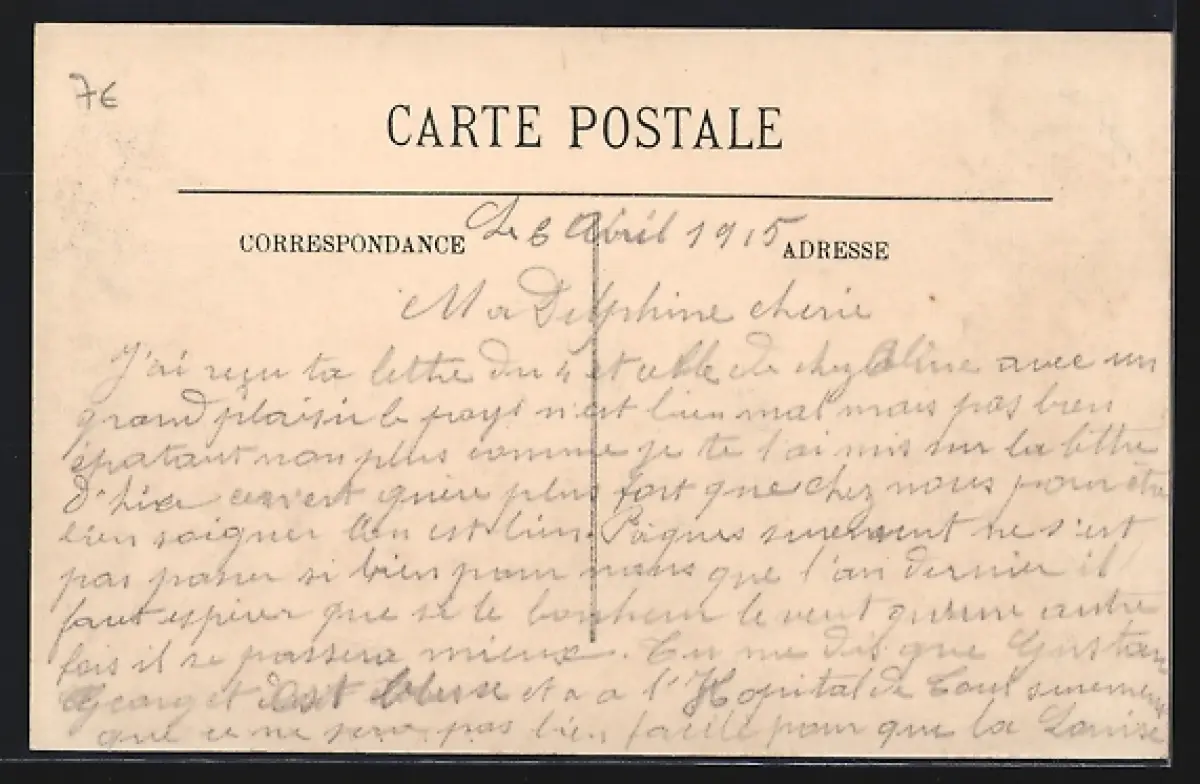 7€
CARTE POSTALE
CORRESPONDANCE
ADRESSE
Le 6 Avril 1915
Ma Delphine cherie
J'ai reçu ta lettre du 4 et celle de chez Aline avec un
grand plaisir le pays n'est bien mal mais pas bien
épatant non plus comme je te l'ai mis sur la lettre
d'hier guère plus fort que chez nous pour être
bien soigner l'on est bien. Pâques surement ne s'est
pas passer si bien pour nous que l'an dernier il
faut espérer que si le bonheur le veut qu'une autre
fois il se passera mieux. Tu me dis que Gustave
Georget est blesse et a a l'Hopital de Toul surement
que ce ne sera pas bien facile pour que la Louise